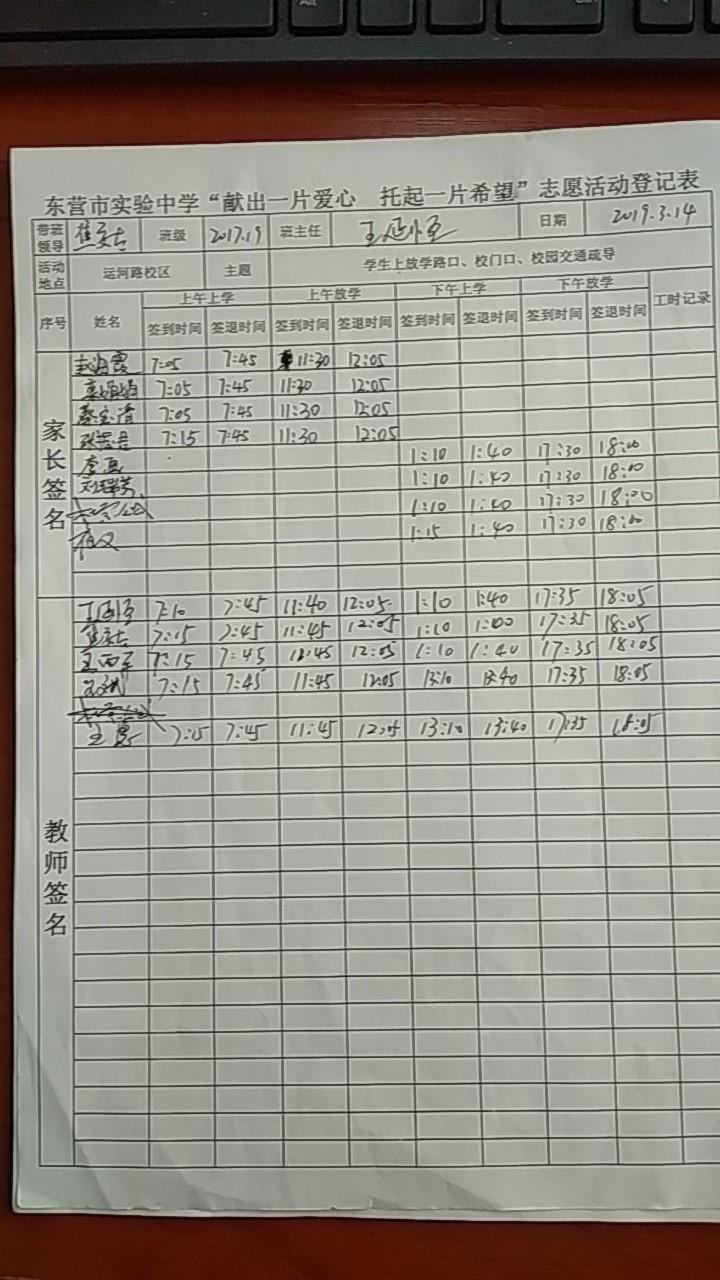 东营市实验中学“献出一片爱心 托起一片希望”志愿活动登记表
带班领导 班级 2017.19 班主任 王延恒 日期 2019.3.14
活动地点 运河路校区 主题 学生上放学路口、校门口、校园交通疏导
序号 姓名 上午上学 上午放学 下午上学 下午放学 工时记录
签到时间 签退时间 签到时间 签退时间 签到时间 签退时间 签到时间 签退时间
家长签名
赵海霞 7:05 7:45 11:30 12:05
7:05 7:45 11:30 12:05
7:05 7:45 11:30 12:05
7:15 7:45 11:30 12:05
1:10 1:40 17:30 18:00
1:10 1:40 17:30 18:00
1:10 1:40 17:30 18:00
1:15 1:40 17:30 18:00
教师签名
王延恒 7:10 7:45 11:40 12:05 1:10 1:40 17:35 18:05
7:15 7:45 11:45 12:05 1:10 17:35 18:05
王西军 7:15 7:45 11:45 12:05 1:10 1:40 17:35 18:05
7:15 7:45 11:45 12:05 13:10 13:40 17:35 18:05
7:15 7:45 11:45 12:05 13:10 13:40 17:35 18:05